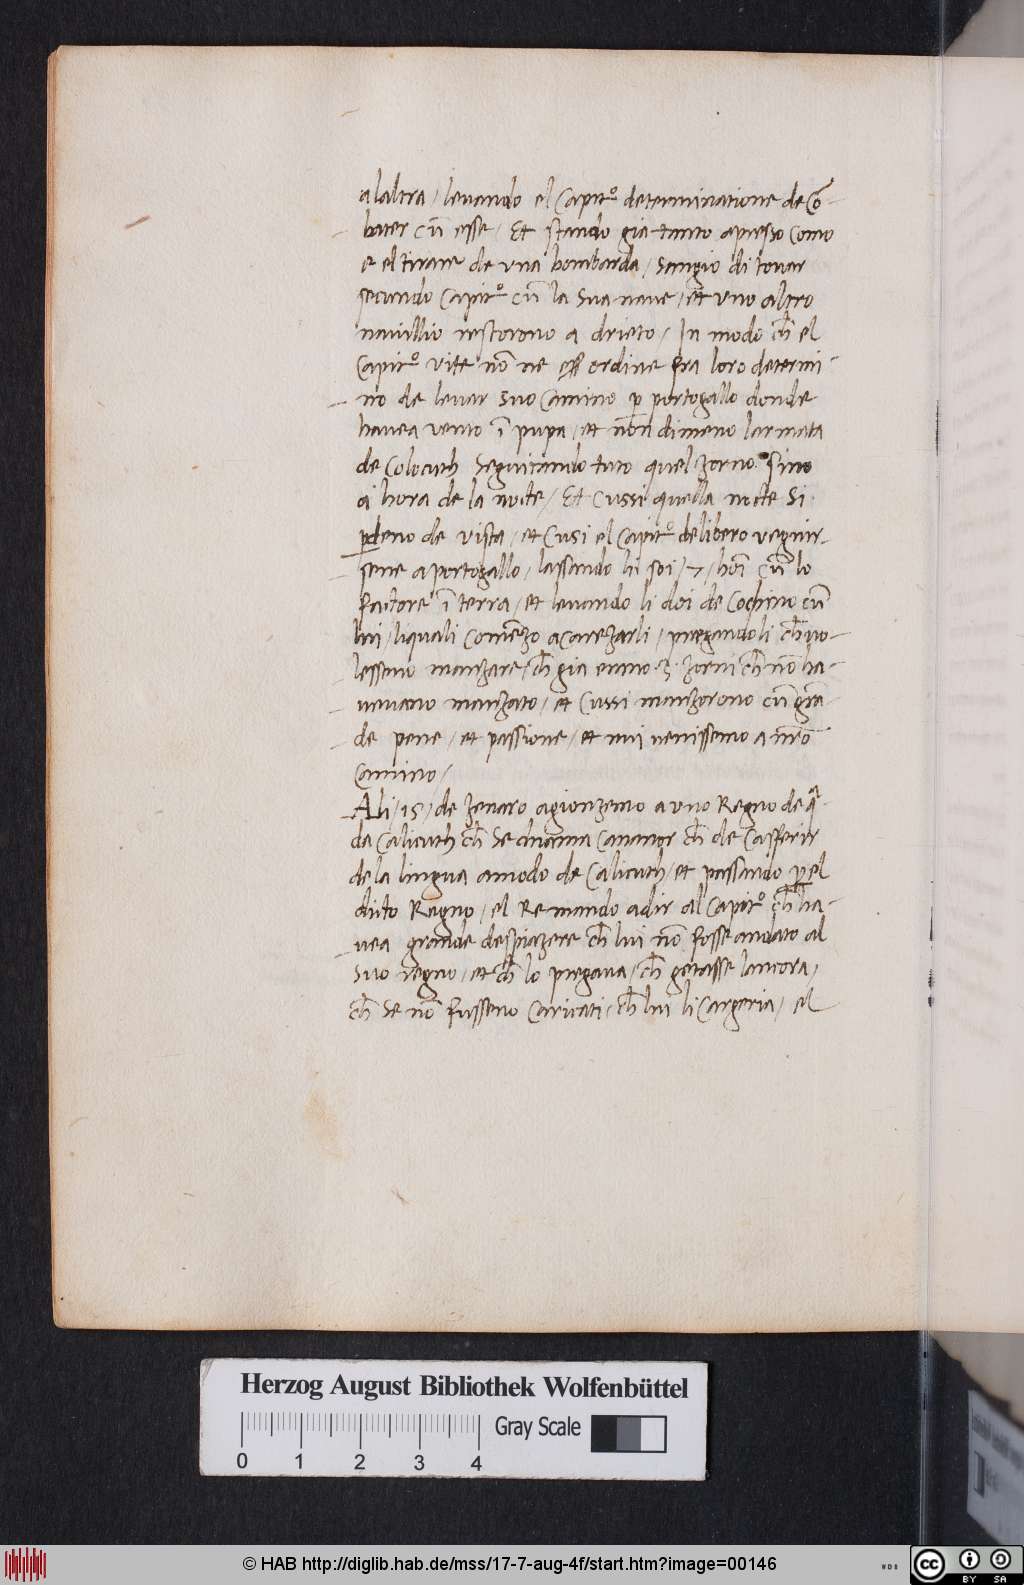 alaltra / leuando el Capit.º determinatione de Cō-
bater cū esse / Et stando gia tanto apresso como
e el tirare de vna bombarda / Sangio di touar
secundo Capit.º cū la Sua naue / et vno altro
nauillio restorono a drieto / In modo ch̄ el
Capit.º vite nō ne esser ordine fra loro determi-
no de leuar suo Camino p portogallo donde
hauea vento ī pupa / et nōn dimeno larmata
de Colocuth Seguitando tuto quel zorno Sino
a hora de la nocte / Et Cussi quella nocte Si
pdeno de vista / et Cusi el Capit.º delibero vegnir-
sene a portogallo / lassando li soi / 7 / hoī cū lo
factore ī terra / et leuando li doi de Cochino cū
lui / liquali Comēzo acarezarli / pregandoli ch̄ vo-
lesseno manzare / ch̄ gia erano .3. zorni ch̄ nō ha-
ueuano manzato / et Cussi manzorono cū grā-
de pene / et passione / et nui uenissemo a nr̄o
Camino /
Ali / 15 / de Zenaro agionzemo a vno Regno de q̄-
da Calicuth ch̄ Se chiama Cananor ch̄ de Casferir
de la lingua amodo de Calicuth / et passando p el
dicto Regno / el Re mando adir al Capit.º ch̄ ha-
uea grande despiazere ch̄ lui nō fosse andato al
Suo regno / et ch̄ lo pregaua / ch̄ getasse lancora /
ch̄ Se nō fusseno Caricati / ch̄ lui li Cargeria / el
Herzog August Bibliothek Wolfenbüttel
Gray Scale
0 1 2 3 4
© HAB http://diglib.hab.de/mss/17-7-aug-4f/start.htm?image=00146
WDB
cc BY SA